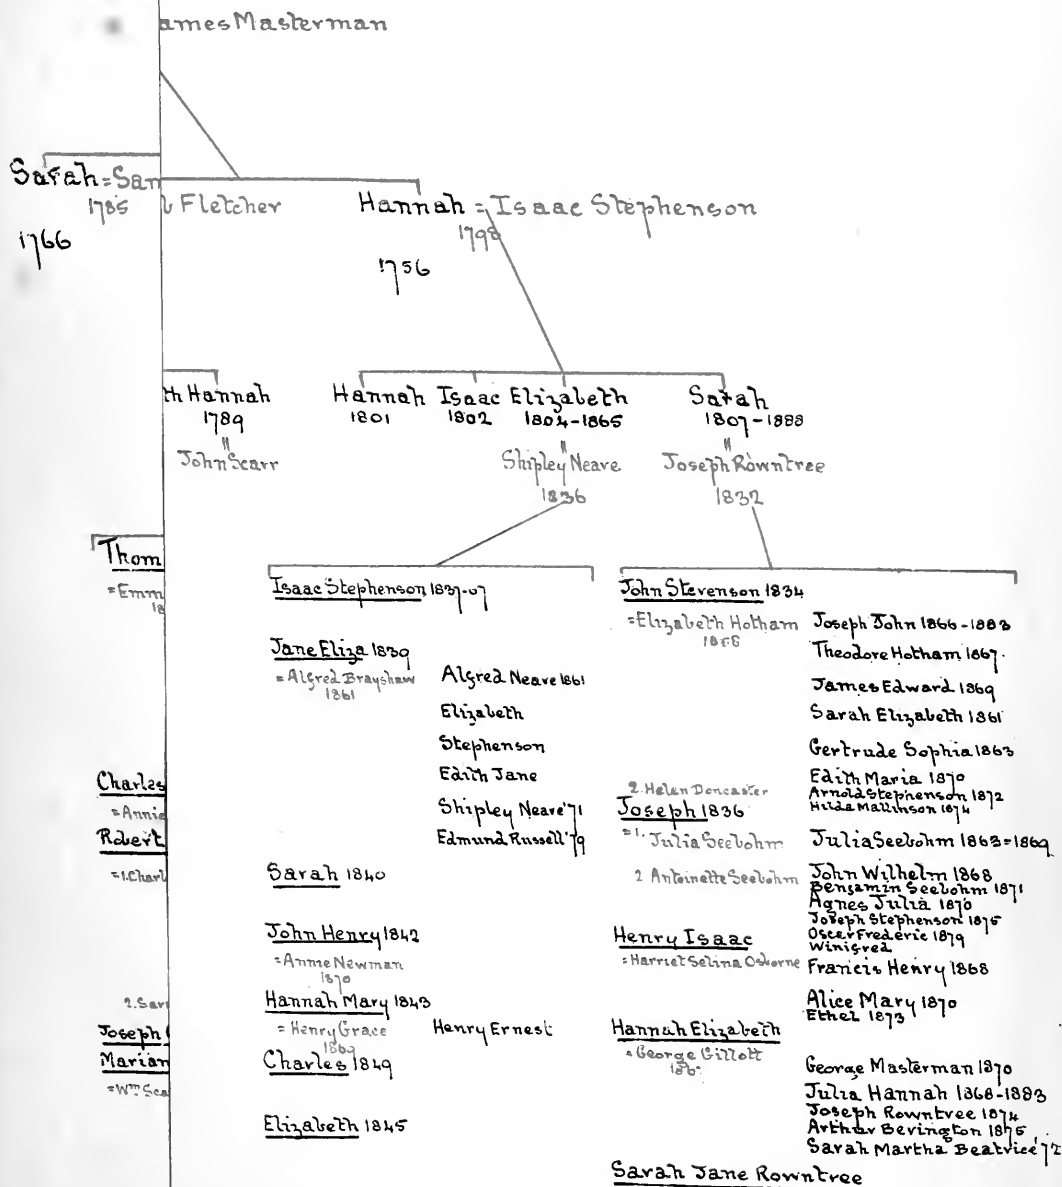 ames Masterman
Sarah = Sam
1785
l Fletcher
1766
Hannah = Isaac Stephenson
1798
1756
th Hannah
1789
=
John Scarr
Hannah
1801
Isaac
1802
Elizabeth
1804-1865
=
Shipley Neave
1836
Sarah
1807-1888
=
Joseph Rowntree
1832
Thom
= Emm
18
Charles
= Annie
Robert
= 1. Charl
2. Sar
Joseph
Marian
= Wm Sca
Isaac Stephenson 1837-07
Jane Eliza 1839
= Alfred Brayshaw
1861
Alfred Neave 1861
Elizabeth
Stephenson
Edith Jane
Shipley Neave '71
Edmund Russell '79
Sarah 1840
John Henry 1842
= Annie Newman
1870
Hannah Mary 1843
= Henry Grace
Henry Ernest
Charles 1849
Elizabeth 1845
John Stevenson 1834
= Elizabeth Hotham
1858
Joseph John 1866-1883
Theodore Hotham 1867.
James Edward 1869
Sarah Elizabeth 1861
Gertrude Sophia 1863
Edith Maria 1870
Arnold Stephenson 1872
Hilda Mallinson 1874
2. Helen Doncaster
Joseph 1836
= 1. Julia Seebohm
Julia Seebohm 1863=1869
2 Antoinette Seebohm
John Wilhelm 1868
Benjamin Seebohm 1871
Agnes Julia 1870
Joseph Stephenson 1875
Oscar Frederic 1879
Winifred
Henry Isaac
= Harriet Selina Osborne
Francis Henry 1868
Alice Mary 1870
Ethel 1873
Hannah Elizabeth
= George Gillott
George Masterman 1870
Julia Hannah 1868-1883
Joseph Rowntree 1874
Arthur Bevington 1875
Sarah Martha Beatrice '72
Sarah Jane Rowntree